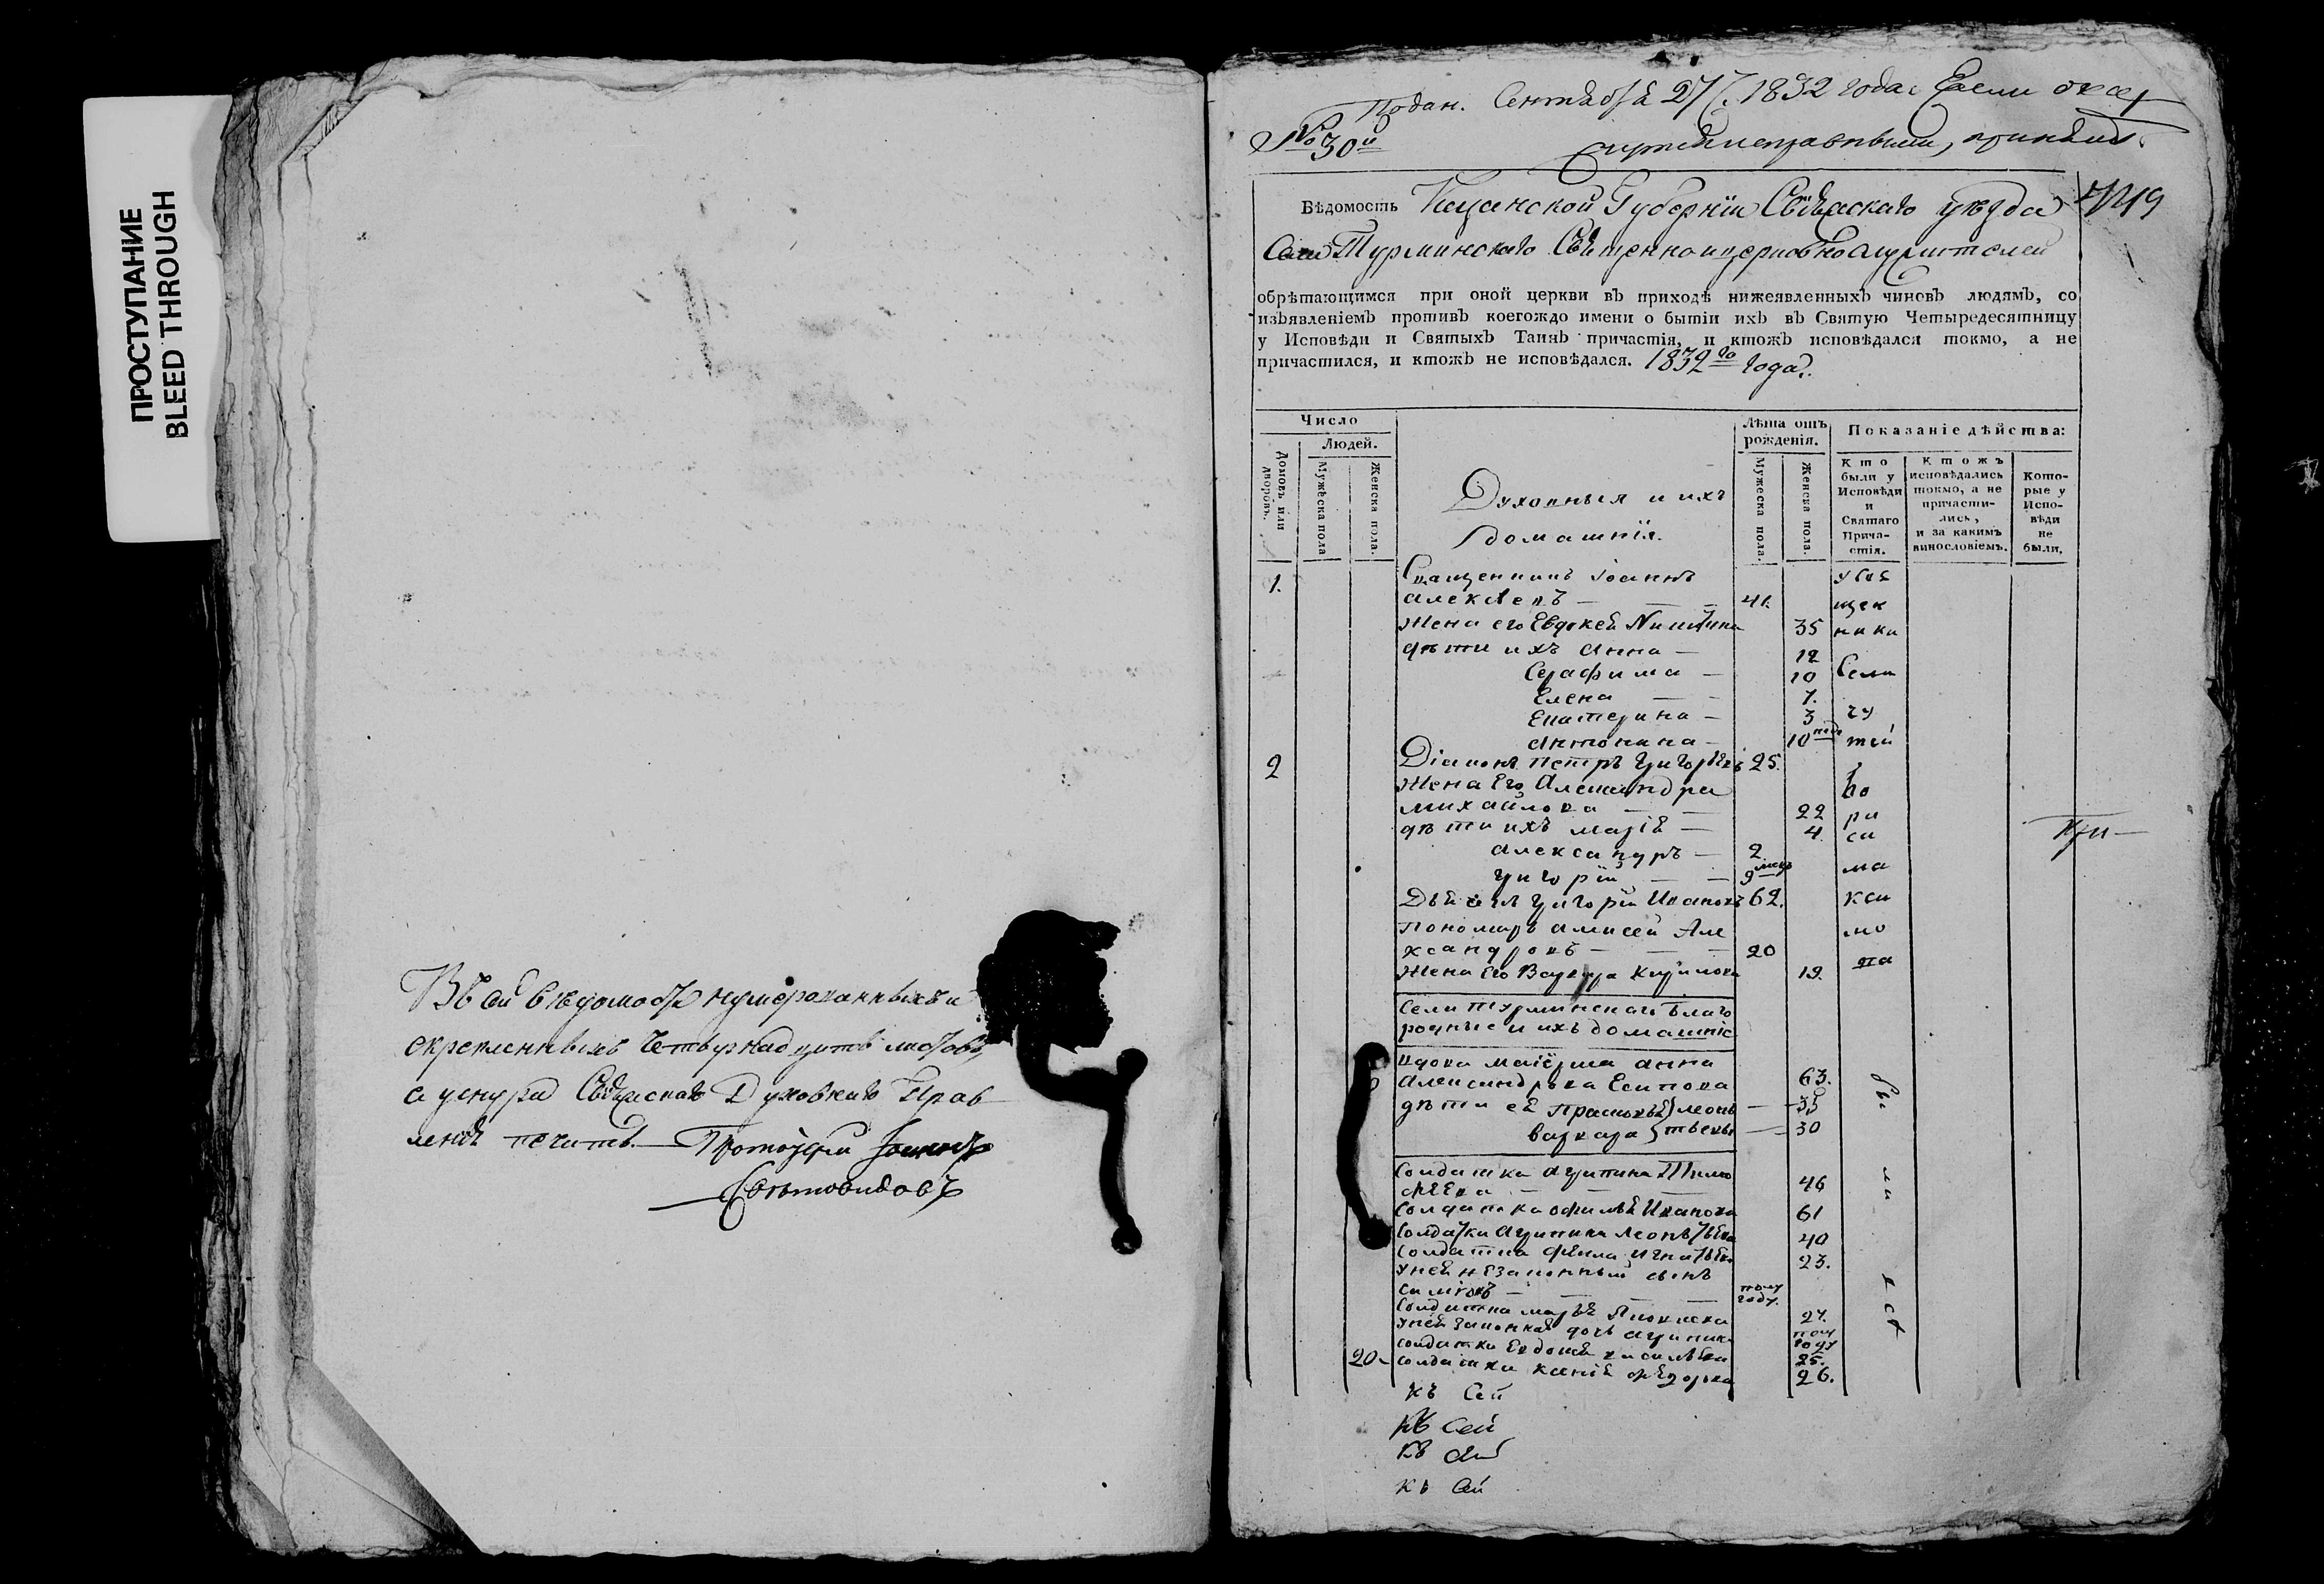 ПРОСТУПАНИЕ
BLEED THROUGH
Въ сей вѣдомости нумерованныхъ и
скрепленныхъ четырнадцать листовъ,
а уснура Свіяжскаго Духовнаго Прав
ленія печать. Протоіерей Іоаннъ
Свѣтовидовъ
Подан. Сентября 27. 1832 года
№ 30й
принялъ.
Вѣдомость Казанской Губерніи Свіяжскаго уѣзда
Села Турминскаго Священно и церковнослужителей
обрѣтающимся при оной церкви въ приходѣ нижеявленныхъ чиновъ людямъ, со
изъявленіемъ противъ коегождо имени о бытіи ихъ въ Святую Четыредесятницу
у Исповѣди и Святыхъ Таинъ причастія, и ктожъ исповѣдался токмо, а не
причастился, и ктожъ не исповѣдался. 1832го года.
Число
Людей.
Домовъ или дворовъ.
Мужеска пола
Женска пола.
Духовныя и ихъ
домашнія.
Лѣта отъ рожденія.
Мужеска пола.
Женска пола.
Показаніе дѣйства:
Кто были у Исповѣди и Святаго Прича-стія.
Ктожъ исповѣдались токмо, а не причасти-лись, и за какимъ винословіемъ.
Кото-рые у Испо-вѣди не были.
1. Священникъ Іоаннъ
Алексѣевъ — 41. щен
Жена его Евдокея Никитина 35 ники
дѣти ихъ Анна — 12
Серафима — 10 Села
Елена — 7.
Екатерина — 3
Антонина — 10
2 Діаконъ Петръ Григорьевъ 25.
Жена Его Александра
Михайлова — 22
дѣти ихъ Марія — 4.
Александръ — 2.
Григорій — 9
При—
Дьячекъ Григорій Ивановъ 62.
Пономарь Алексей Але
ксандровъ — 20
Жена Его Варвара Кирилова 19
Села Турминскаго Благо
родные и ихъ домашніе
Вдова маіорша Анна
Александрова Есипова 63.
дѣти её Прасковья Леонь — 33
Варвара тьевы — 30
бы
Солдатка Агрипина Тимо
фѣева — 46
ли
Солдатка Офимья Иванова 61
Солдатка Агрипина Леонтьева 40
Солдатка Фёкла Игнатьева 23.
у ней незаконный сынъ
— полу году.
Солдатка Марья 27.
у ней законная дочь Агрипина полу году
солдатка Евдокея Васильева 25.
20. солдатка Ксенія Фёдорова 26.
Къ Сей
Къ Сей
Къ Сей
Къ Сей